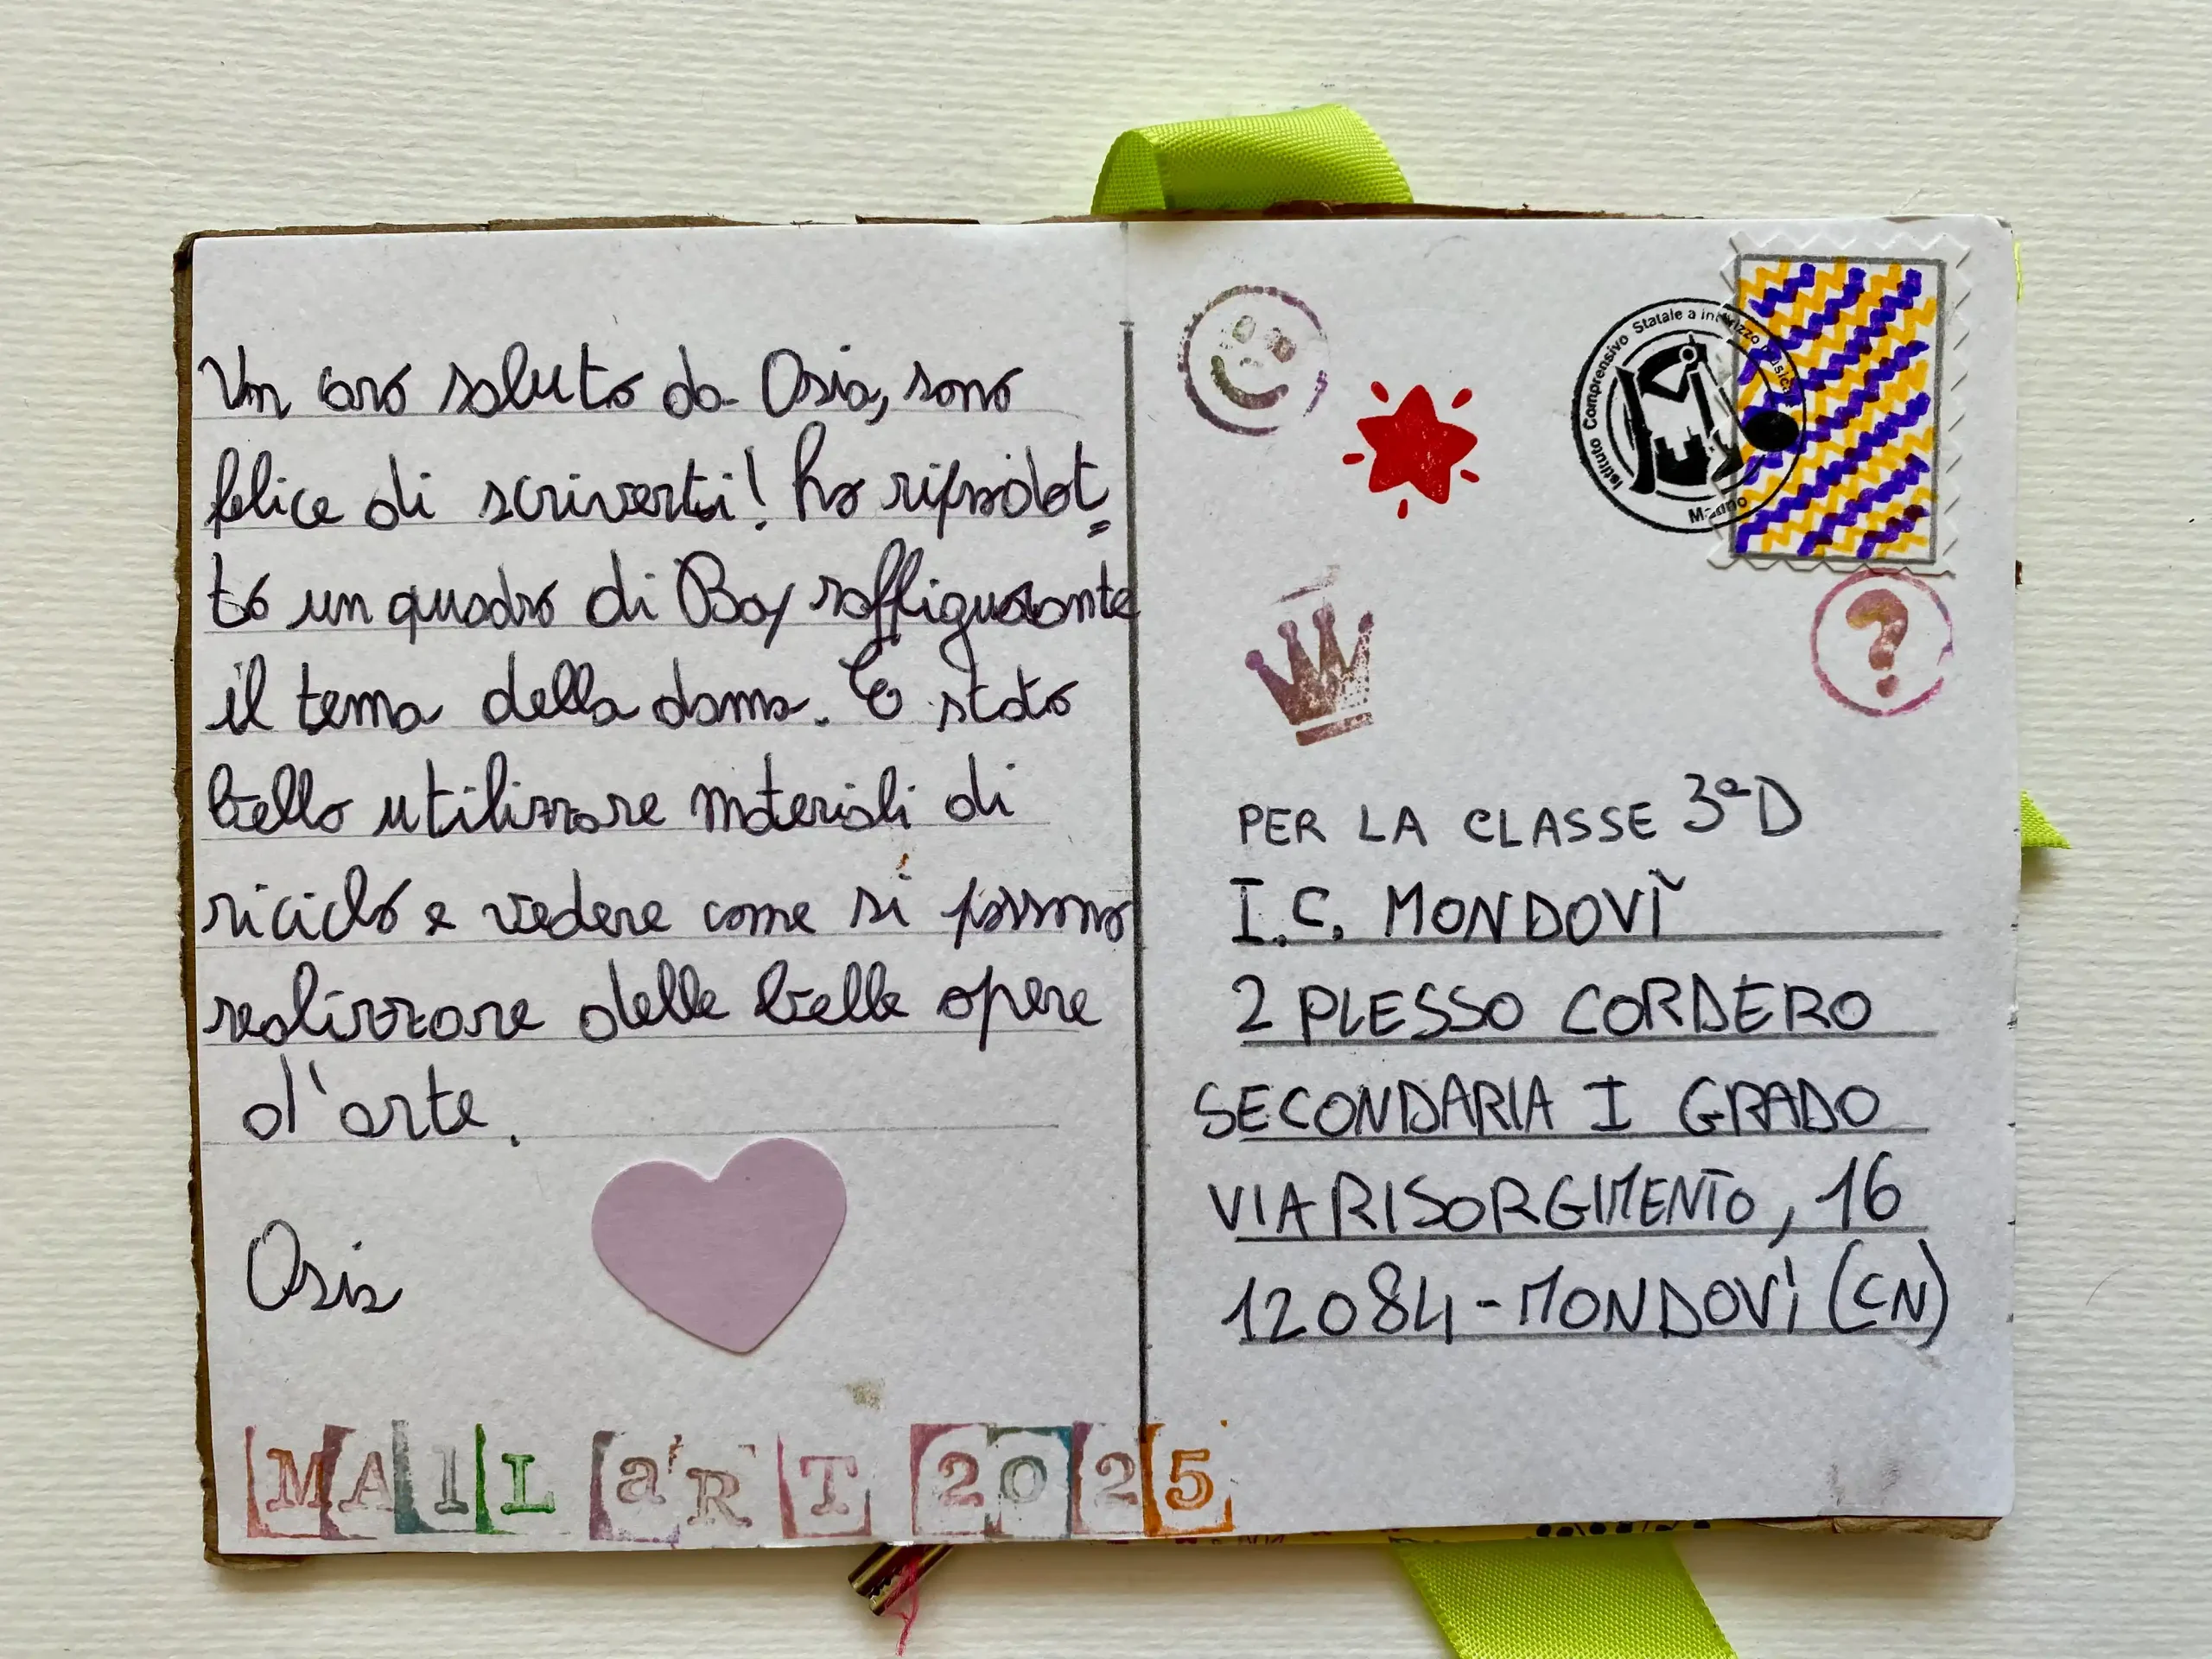 Un caro saluto da Osia, sono
felice di scriverti! ho riprodot
to un quadro di Bay raffigurante
il tema della dama. È stato
bello utilizzare materiali di
riciclo e vedere come si possono
realizzare delle belle opere
d'arte.
Osia
MAIL aRT 2025
Istituto Comprensivo Statale a indirizzo Musicale
?
PER LA CLASSE 3ªD
I.C. MONDOVÌ
2 PLESSO CORDERO
SECONDARIA I GRADO
VIA RISORGIMENTO, 16
12084-MONDOVÌ (CN)